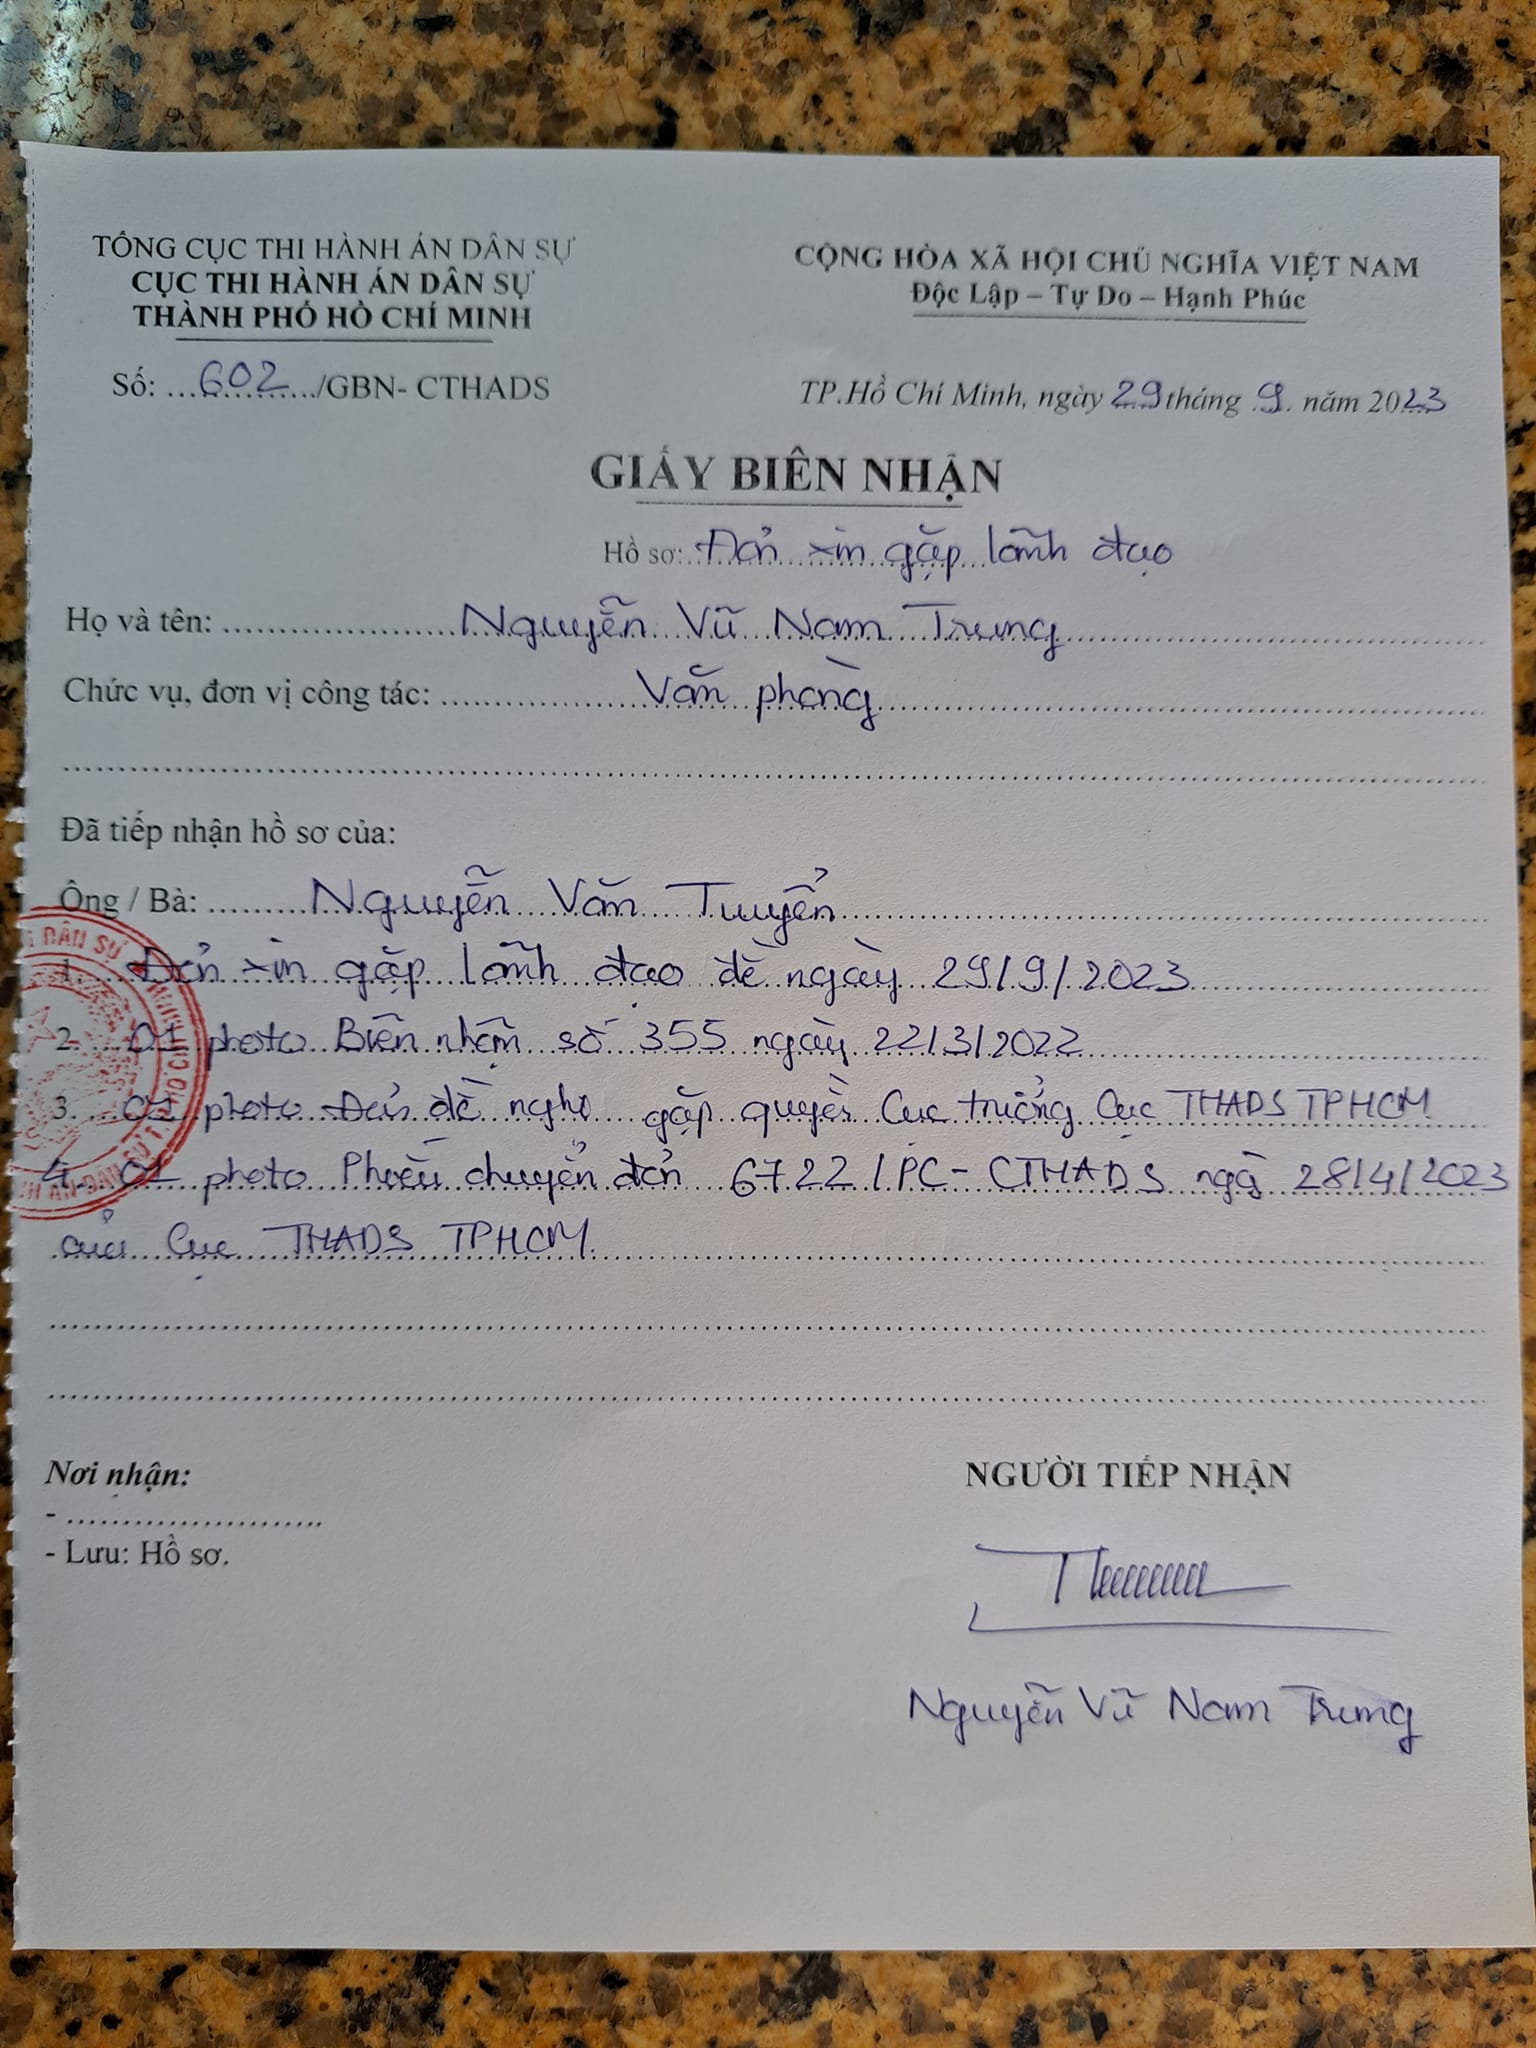 TỔNG CỤC THI HÀNH ÁN DÂN SỰ
CỤC THI HÀNH ÁN DÂN SỰ
THÀNH PHỐ HỒ CHÍ MINH
Số: ...602.../GBN- CTHADS
CỘNG HÒA XÃ HỘI CHỦ NGHĨA VIỆT NAM
Độc Lập – Tự Do – Hạnh Phúc
TP.Hồ Chí Minh, ngày 29 tháng 9 năm 2023
GIẤY BIÊN NHẬN
Hồ sơ: Đơn xin gặp lãnh đạo
Họ và tên: Nguyễn Vũ Nam Trung
Chức vụ, đơn vị công tác: Văn phòng
Đã tiếp nhận hồ sơ của:
Ông / Bà: Nguyễn Văn Tuyển
1. Đơn xin gặp lãnh đạo đề ngày 29/9/2023
2. 01 photo Biên nhận số 355 ngày 22/3/2022
3. 01 photo Đơn đề nghị gặp quyền Cục trưởng Cục THADS TPHCM
4. 01 photo Phiếu chuyển đơn 6722/PC-CTHADS ngày 28/4/2023
của Cục THADS TPHCM
Nơi nhận:
- ........................
- Lưu: Hồ sơ.
NGƯỜI TIẾP NHẬN
Nguyễn Vũ Nam Trung